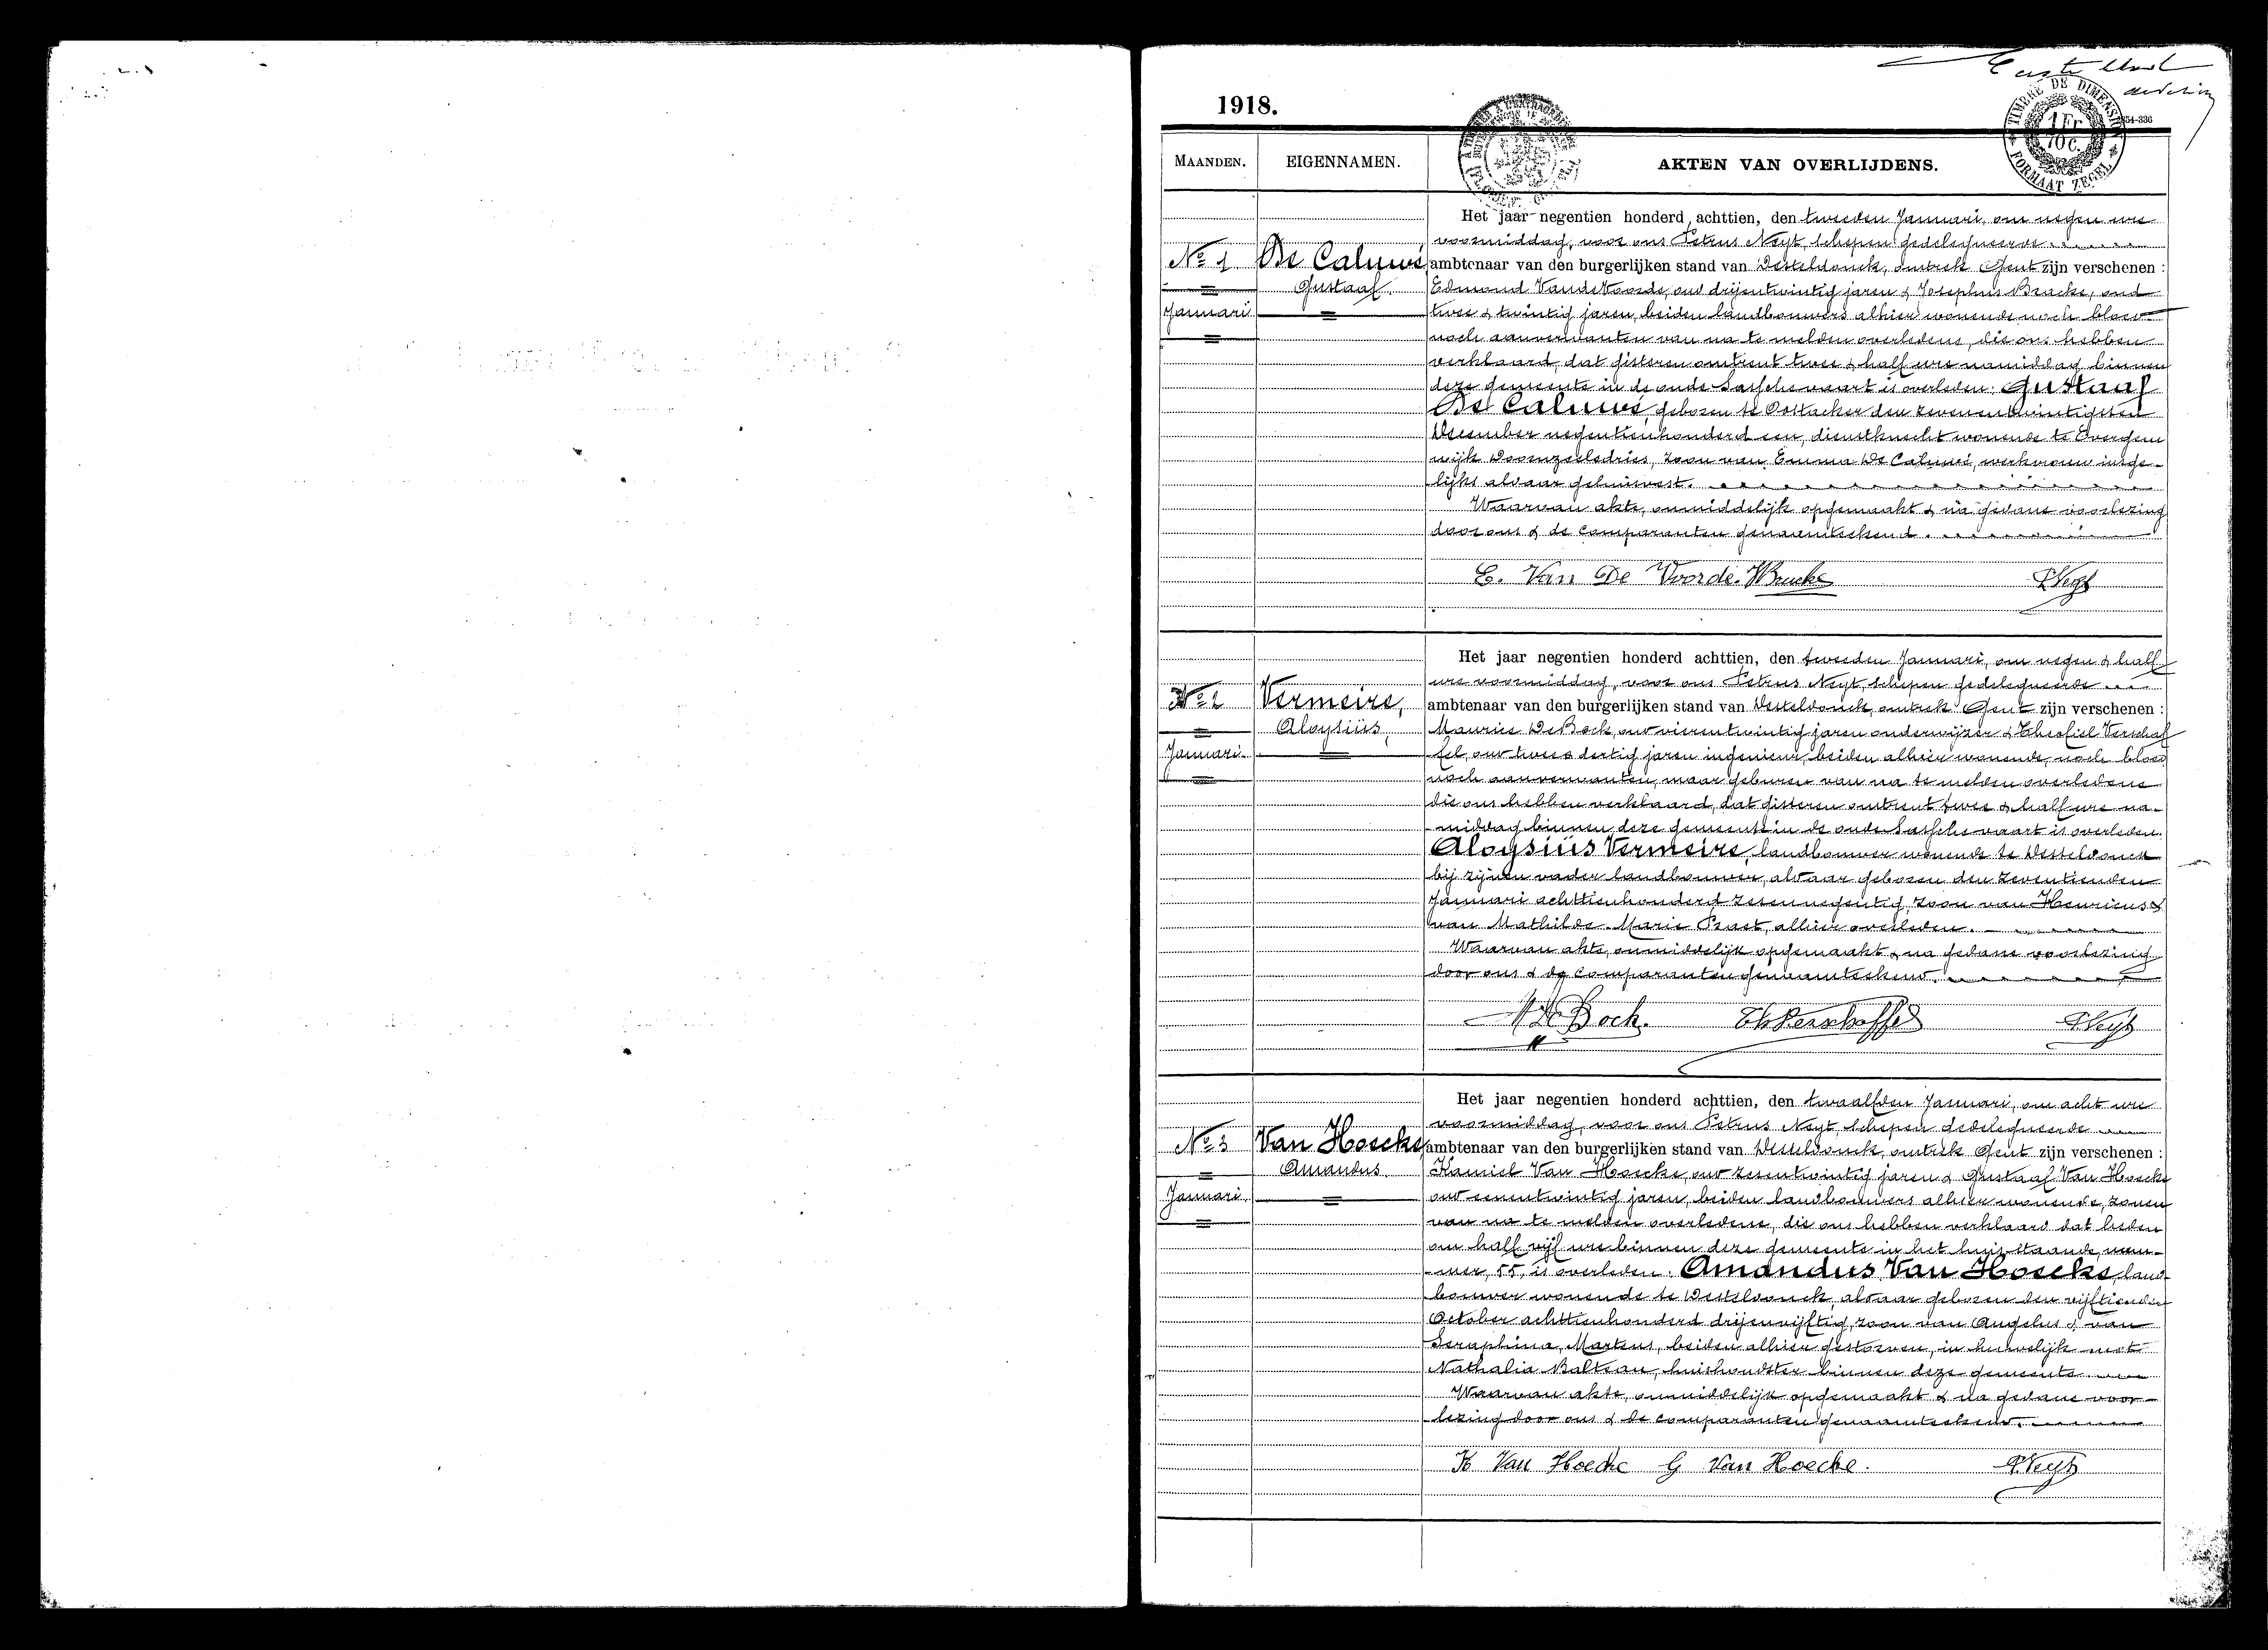 1918.
MAANDEN.
EIGENNAMEN.
AKTEN VAN OVERLIJDENS.
TIMBRE DE DIMENSION
1 Fr
10c.
FORMAAT ZEGEL
No 1
Januari
De Caluwé
Gustaaf
Het jaar negentien honderd achttien, den tweeden Januari, om negen ure
voormiddag, voor ons Petrus Neyt, schepen gedelegueerde
ambtenaar van den burgerlijken stand van Desteldonck, omtrek Gent zijn verschenen :
Edmond Vande Voorde, oud drijentwintig jaren & Josephus Bracke, oud
twee & twintig jaren, beiden landbouwers alhier wonende noch bloed
noch aanverwanten van na te melden overledene, die ons hebben
verklaard, dat gisteren omtrent twee & half ure namiddag binnen
deze gemeente in de oude Sassche vaart is overleden: Gustaaf
De Caluwé, geboren te Oostacker den zevenentwintigsten
December negentienhonderd een, dienstknecht wonende te Evergem
wijk Doornzeeledries, zoon van Emma De Caluwé, werkvrouw insge-
lijks aldaar gehuisvest.
Waarvan akte, onmiddelijk opgemaakt & na gedane voorlezing
door ons & de comparanten genaamteekend.
E. Van De Voorde. Bracke
PNeyt
No 2
Januari
Vermeire,
Aloysiüs,
Het jaar negentien honderd achttien, den tweeden Januari, om negen & half
ure voormiddag, voor ons Petrus Neyt, schepen gedelegueerde
ambtenaar van den burgerlijken stand van Desteldonck, omtrek Gent zijn verschenen :
Maurice De Bock, oud vierentwintig jaren onderwijzer & Theofiel Verschaf
fel, oud twee & dertig jaren ingenieur, beiden alhier wonende, noch bloed
noch aanverwanten, maar geburen van na te melden overledene
die ons hebben verklaard, dat gisteren omtrent twee & half ure na-
middag binnen deze gemeente in de oude Sassche vaart is overleden.
Aloysiüs Vermeire, landbouwer wonende te Desteldonck
bij zijnen vader landbouwer, aldaar geboren den zeventienden
Januari achttienhonderd zesennegentig, zoon van Henricus &
van Mathilde Marie Praet, alhier overleden.
Waarvan akte, onmiddelijk opgemaakt & na gedane voorlezing
door ons & de comparanten genaamteekend.
M De Bock.
Th Verschaffel
PNeyt
No 3
Januari
Van Hoecke,
Amandus
Het jaar negentien honderd achttien, den twaalfden Januari, om acht ure
voormiddag, voor ons Petrus Neyt, schepen gedelegueerde
ambtenaar van den burgerlijken stand van Desteldonck, omtrek Gent zijn verschenen :
Kamiel Van Hoecke, oud zesentwintig jaren & Gustaaf Van Hoecke
oud eenentwintig jaren, beiden landbouwers alhier wonende, zonen
van na te melden overledene, die ons hebben verklaard dat heden
om half vijf ure binnen deze gemeente in het huis staande, num-
mer, 55, is overleden. Amandus Van Hoecke, land
bouwer wonende te Desteldonck, aldaar geboren den vijftienden
October achttienhonderd drijenvijftig, zoon van Angelus & van
Seraphina Martens, beiden alhier gestorven, in huwelijk met
Nathalia Balteau, huishoudster binnen deze gemeente
Waarvan akte, onmiddelijk opgemaakt & na gedane voor-
lezing door ons & de comparanten genaamteekend.
K Van Hoecke G Van Hoecke.
PNeyt